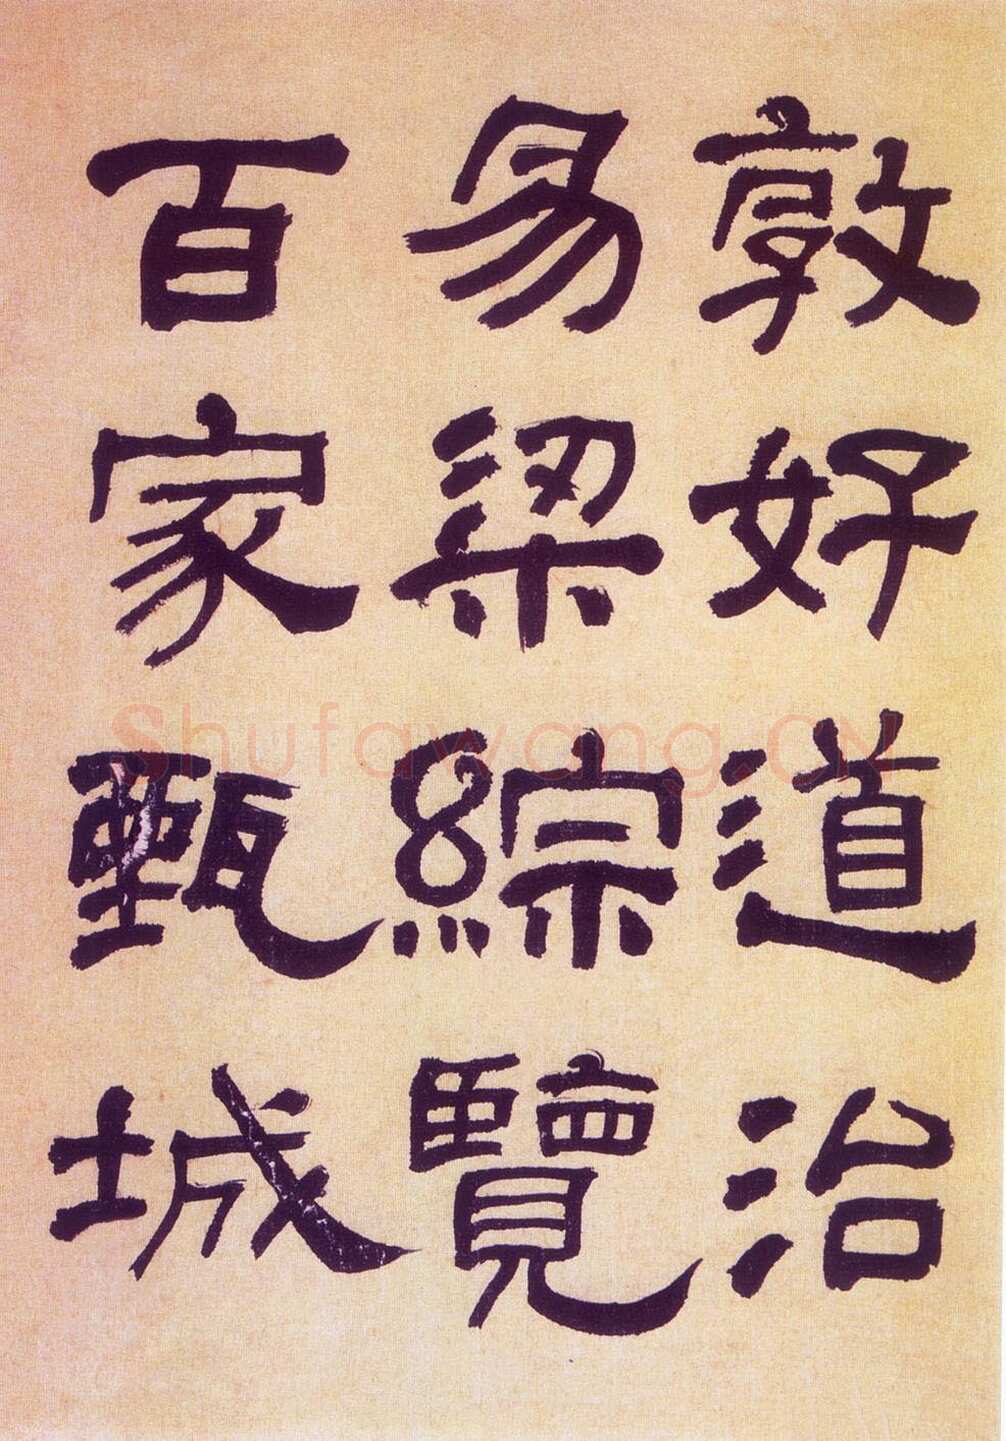 敦好道治
易梁綜覽
百家甄城
Shufawang.CN